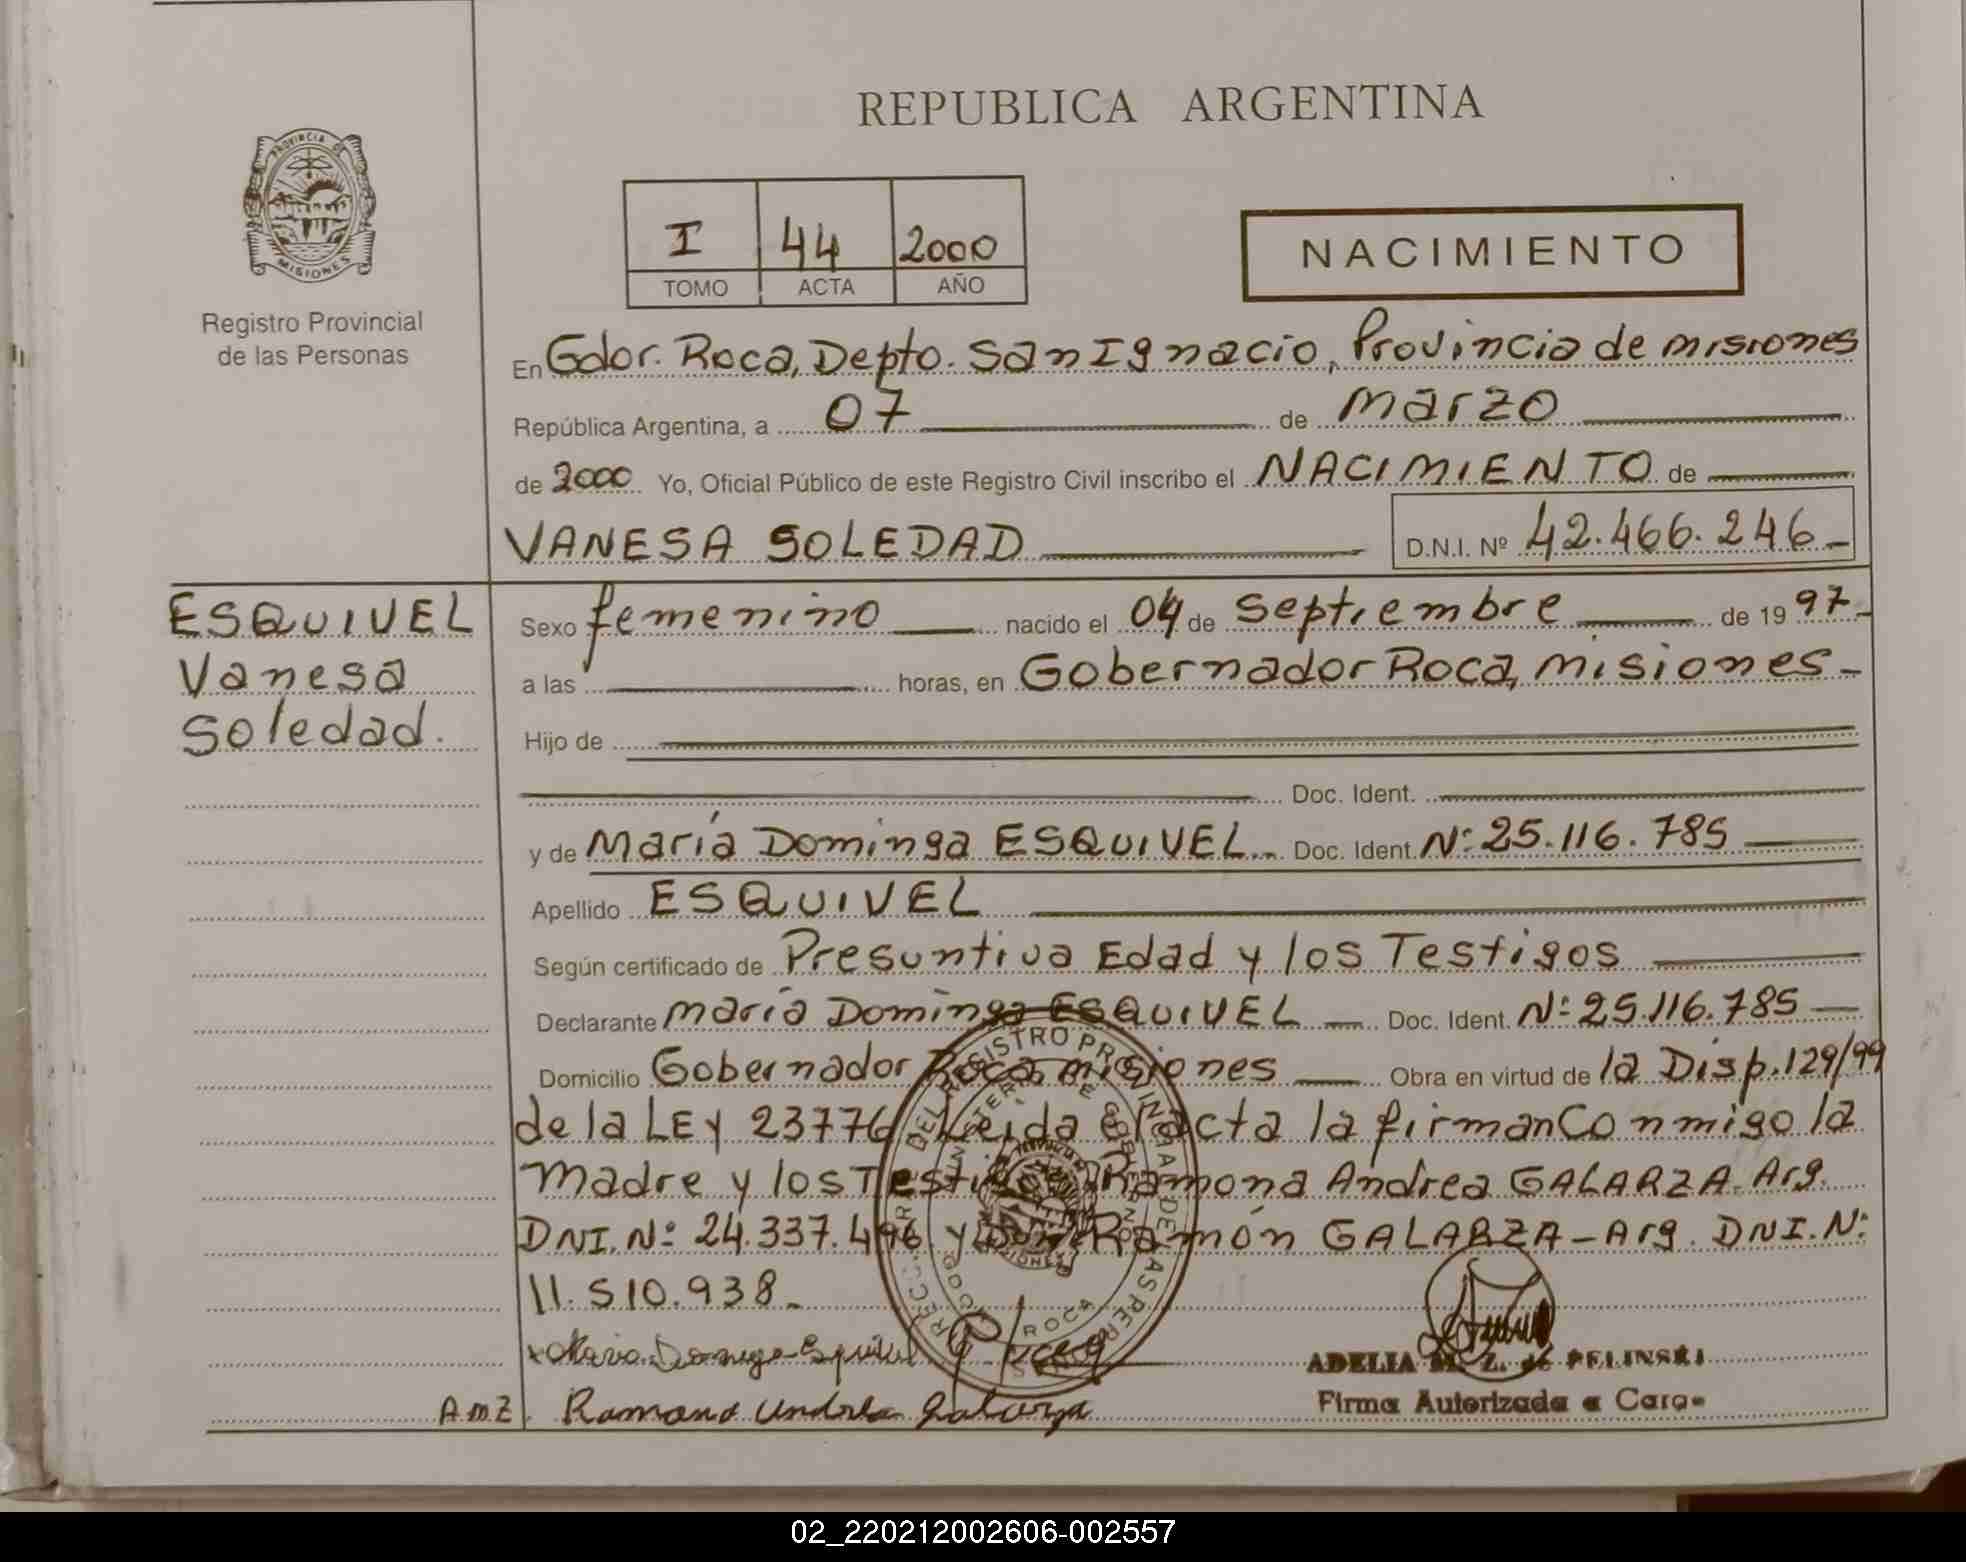 REPUBLICA ARGENTINA
PROVINCIA DE
MISIONES
Registro Provincial
de las Personas
I 44 2000
TOMO ACTA AÑO
NACIMIENTO
En Gdor. Roca, Depto. San Ignacio, Provincia de Misiones
República Argentina, a 07 de Marzo
de 2000 Yo, Oficial Público de este Registro Civil inscribo el NACIMIENTO de
VANESA SOLEDAD D.N.I. Nº 42.466.246
ESQUIVEL
Vanesa
Soledad.
Sexo femenino nacido el 04 de Septiembre de 19 97
a las horas, en Gobernador Roca, Misiones
Hijo de
Doc. Ident.
y de María Dominga ESQUIVEL Doc. Ident. Nº 25.116.785
Apellido ESQUIVEL
Según certificado de Presuntiva Edad y los Testigos
Declarante María Dominga ESQUIVEL Doc. Ident. Nº 25.116.785
Domicilio Gobernador Roca, Misiones Obra en virtud de la Disp. 129/99
de la LEY 23776 Leida el acta la firman Conmigo la
Madre y los Testigos Ramona Andrea GALARZA Arg.
DNI. Nº 24.337.496 y Don Ramón GALARZA - Arg. DNI. Nº
11.510.938
Maria Dominga Esquivel
ADELIA M. Z. de PELINSKI
A.M.Z. Ramona Andrea Galarza
Firma Autorizada a Cargo
DEL REGISTRO PROVINCIAL DE LAS PERSONAS
MINISTERIO DE GOBIERNO
ROCA
02_220212002606-002557